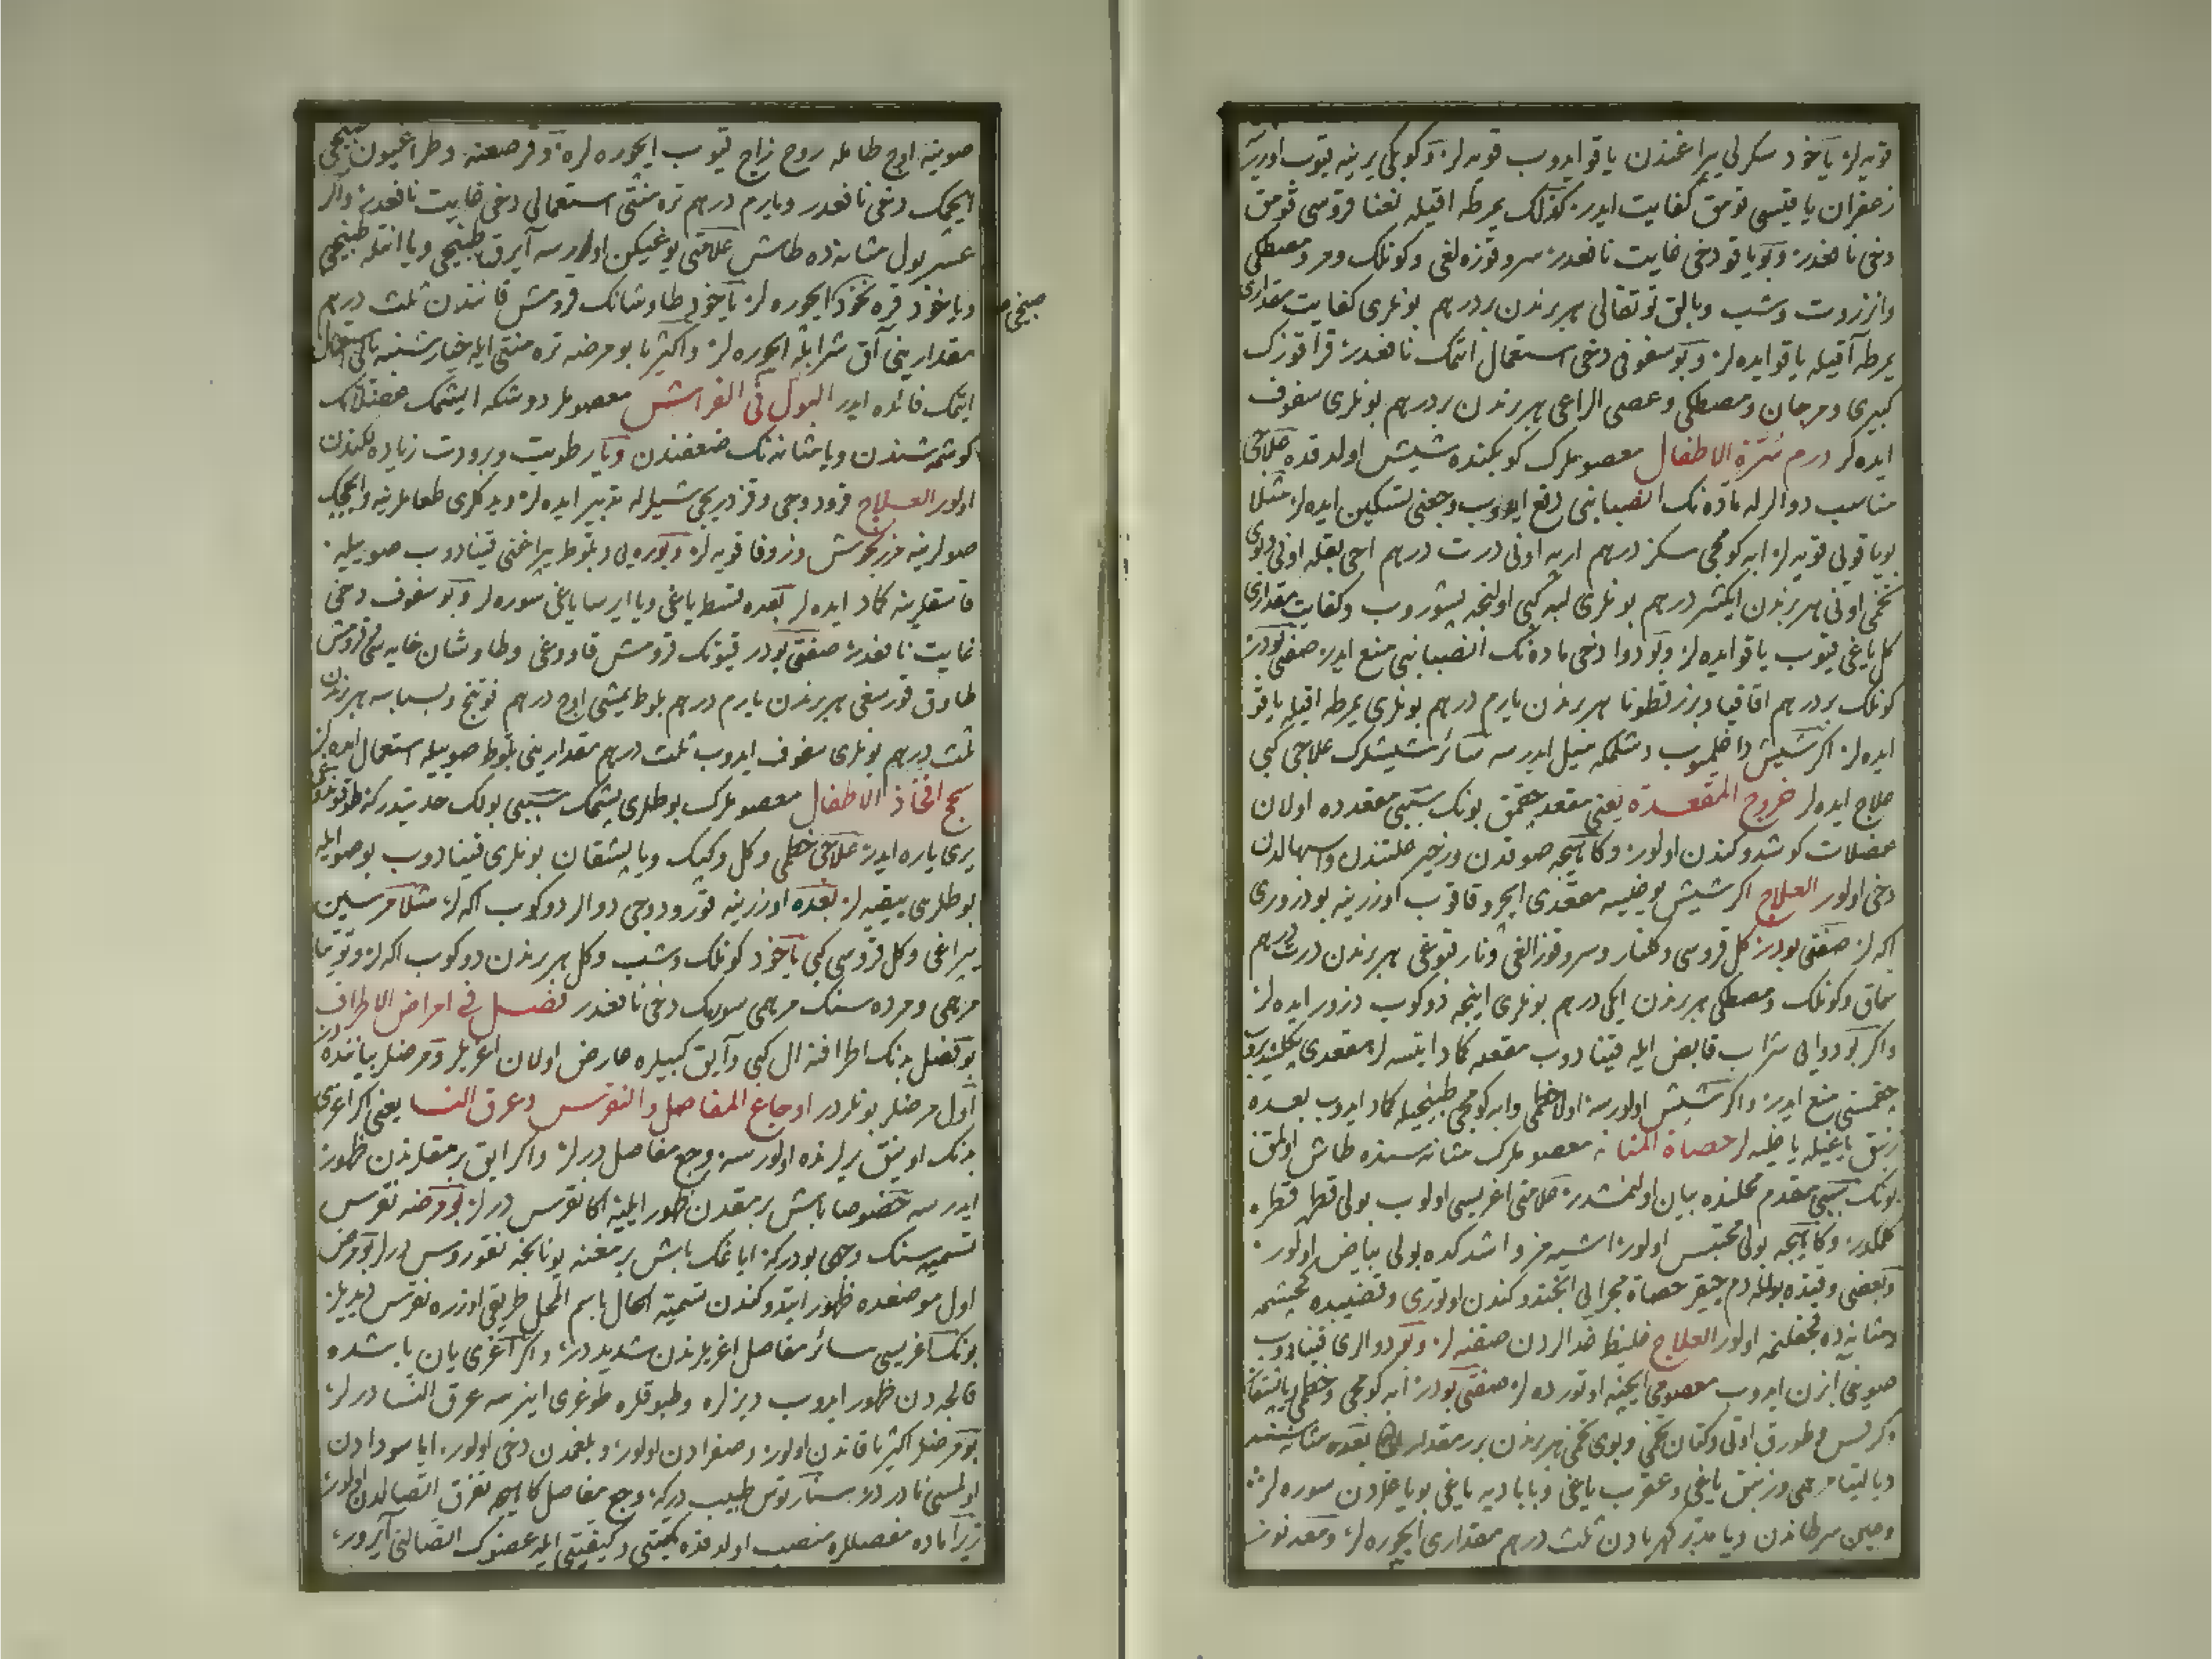 قویه لر یاخود سکرلی پیراغندن یاقو ایدوب قویه لر و کوبکی یرینه قیوب اوزرینه
زعفران یاقیسی قومق کفایت ایدر کذلک یمرطه اقیله نعنا قروسی قومق
دخی نافعدر و بو یاقو دخی غایت نافعدر سرو قوزه لغی و کونلک و مر و مصطکی
وانزروت وشب وبالق توتقالی هر برندن بر درهم بونلری کفایت مقداری
یمرطه آقیله یاقو ایده لر و بو سفوفی دخی استعمال اتمک نافعدر قرا قوزک
کبیری و مرجان و مصطکی و عصی الراعی هر برندن بر درهم بونلری سفوف
ایده لر ورم سرة الاطفال معصوملرک کوبکنده شیش اولدقده علاجی
مناسب دوالرله ماده نک انصبابنی دفع ایدوب وجعنی تسکین ایده لر مثلا
بو یاقویی قویه لر ابه کومجی سکز درهم اربه اونی درت درهم اجی بقله اونی و بوی
تخمی اونی هر برندن ایکیشر درهم بونلری لبه کبی اولنجه پشوروب و کفایت مقداری
کل یاغی قیوب یاقو ایده لر و بو دوا دخی ماده نک انصبابنی منع ایدر صفتی بودر
کونلک بر درهم اقاقیا و بزر قطونا هر برندن یارم درهم بونلری یمرطه اقیله یاقو
ایده لر اکر شیش داغلیوب دشلمکه میل ایدرسه سائر شیشلرک علاجی کبی
علاج ایده لر خروج المقعدة یعنی مقعد چقمق بونک سببی مقعدده اولان
عضلات کوشدوکندن اولور و کاهیجه صوقدن و زحیر علتندن و اسهالدن
دخی اولور العلاج اکر شیش یوغیسه مقعدی ایچرو قاقوب اوزرینه بو ذروری
اکه لر صفتی بودر کل قروسی و کلنار و سرو قوزالغی و نار قبوغی هر برندن درت درهم
سماق و کونلک و مصطکی هر برندن ایکی درهم بونلری اینجه دوکوب ذرور ایده لر
واکر بو دوایی شراب قابض ایله قیناد وب مقعده کماد ایتسه لر مقعدی پکلشدیروب
چقمسنی منع ایدر واکر شیش اولورسه اولا خطمی و ابه کومجی طبیخیله کماد ایدوب بعده
زنبق یاغیله یاغلیه لر حصاة المثانه معصوملرک مثانه سنده طاش اولمق
بونک سببی مقدم محلنده بیان اولنمشدر علامتی اغریسی اولوب بولی قطره قطره
کلکدر و کاهیجه بولی محتبس اولور اشیه مز و اشدکده بولی بیاض اولور
وبعضی وقتده بولله دم چیقر حصاة مجرایی انجتدوکندن اوتوری و قضیبده کجیشمه
ومثانه ده ثقلنمه اولور العلاج غلیظ غدالردن صقنه لر و بو دوالری قیناد وب
صوینی ابزن ایدوب معصومی ایچینه اوتورده لر صفتی بودر ابه کومجی و خطمی و یاپشقان
کرفس و طورق اوتی و کتان تخمی و بوی تخمی هر برندن بر مقدار بعده مثانه سنه
دیالتیا مرهمی و زنبق یاغی و عقرب یاغی و بابادیه یاغی بو یاغلردن سوره لر
وچین سرطاندن ویا مدبر کهربادن ثلث درهم مقداری ایچوره لر ومعدنوس
صوینه اوچ طامله روح زاج قیوب ایچوره لر و قرصعنه وطراغیون طبیخی
ایچمک دخی نافعدر و یارم درهم تره منتی استعمالی دخی غایت نافعدر واکر
عسر بول مثانه ده طاش علامتی یوغیکن اولورسه آیرق طبیخی ویا انقله طبیخی
ویاخود قره نخود ایچوره لر یاخود طاوشانک قورمش قانندن ثلث درهم
مقدارینی آق شرابله ایچوره لر و اکثریا بو مرضه تره منتی ایله خیارشنبه بالی استعمال
ایتمک فائده ایدر البول فی الفراش معصوملر دوشکه ایشمک عضلاتک
کوشمه سندن ویا مثانه نک ضعفندن ویا رطوبت و برودت زیاده لکندن
اولور العلاج قورودوجی و قزدیرجی شیلرله تدبیر ایده لر ویدکلری طعاملرینه و ایچجک
صولرینه مرزنجوش و زوفا قویه لر و بوره یی و بلوط پیراغنی قیناد وب صوییله
قاسقلرینه کماد ایده لر بعده قسط یاغی ویا ایرسا یاغی سوره لر و بو سفوف دخی
غایت نافعدر صفتی بودر قیونک قورمش قاووغی و طاوشان خایه سی قورمش
طاوق قورسغی هر برندن یارم درهم بلوط یمشی اوچ درهم فوتنج و بسباسه هر برندن
ثلث درهم بونلری سفوف ایدوب ثلث درهم مقدارینی بلوط صوییله استعمال ایده لر
سحج افخاذ الاطفال معصوملرک بوطلری پشمک سببی بولک حدتیدر که طوقوندوغی
یری یاره ایدر علاجی خطمی و کل و کپک ویا پشقان بونلری قیناد وب بو صو ایله
بوطلری ییقیه لر بعده اوزرینه قورودوجی دوالر دوکوب اکه لر مثلا مرسین
پیراغی و کل قروسی کبی یاخود کونلک و شب و کل هر برندن دوکوب اکه لر و توتیا
مرهمی و مرده سنک مرهمی سورمک دخی نافعدر فصل فی امراض الاطراف
بو فصل بدنک اطرافنه ال کبی و آیق کبیلره عارض اولان اغریلر و مرضلر بیاننده در
اول مرضلر بونلردر اوجاع المفاصل والنقرس و عرق النسا یعنی اکر اغری
بدنک اوینق یرلرنده اولورسه وجع مفاصل درلر واکر ایق برمقلرندن ظهور
ایدرسه خصوصا باش برمقدن ظهور ایلیه اکا نقرس درلر بو مرضه نقرس
تسمیه سنک وجهی بودر که ایاغک باش برمغنه یونانجه نقوروس درلر بو مرض
اول موضعده ظهور ایتدوکندن تسمیة الحال باسم المحل طریقی اوزره نقرس دیدیلر
بونک اغریسی سائر مفاصل اغریلرندن شدیددر واکر اغری یان باشده
قالجه دن ظهور ایدوب دیزلره و طپوقلره طوغری اینرسه عرق النسا درلر
بو مرضلر اکثریا قاندن اولور و صفرادن اولور و بلغمدن دخی اولور اما سودادن
اولمسی نادردر سنارتوس طبیب دیر که وجع مفاصل کاهیجه تفرق اتصالدن اولور
زیرا ماده مفصللره منصب اولدقده کمیتی و کیفیتی ایله عضوک اتصالنی آیرور